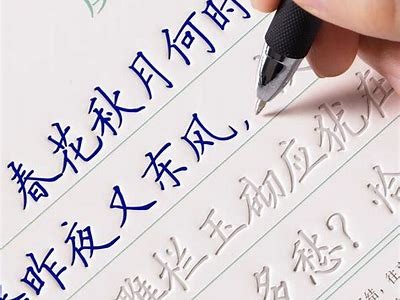 春花秋月何时
昨夜又东风，
雕栏玉砌应犹在
多愁？恰
结，往